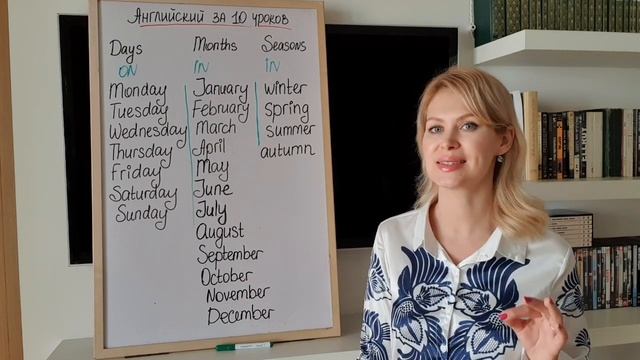 Английский за 10 уроков
Days Months Seasons
ON IN IN
Monday January winter
Tuesday February spring
Wednesday March summer
Thursday April autumn
Friday May
Saturday June
Sunday July
August
September
October
November
December